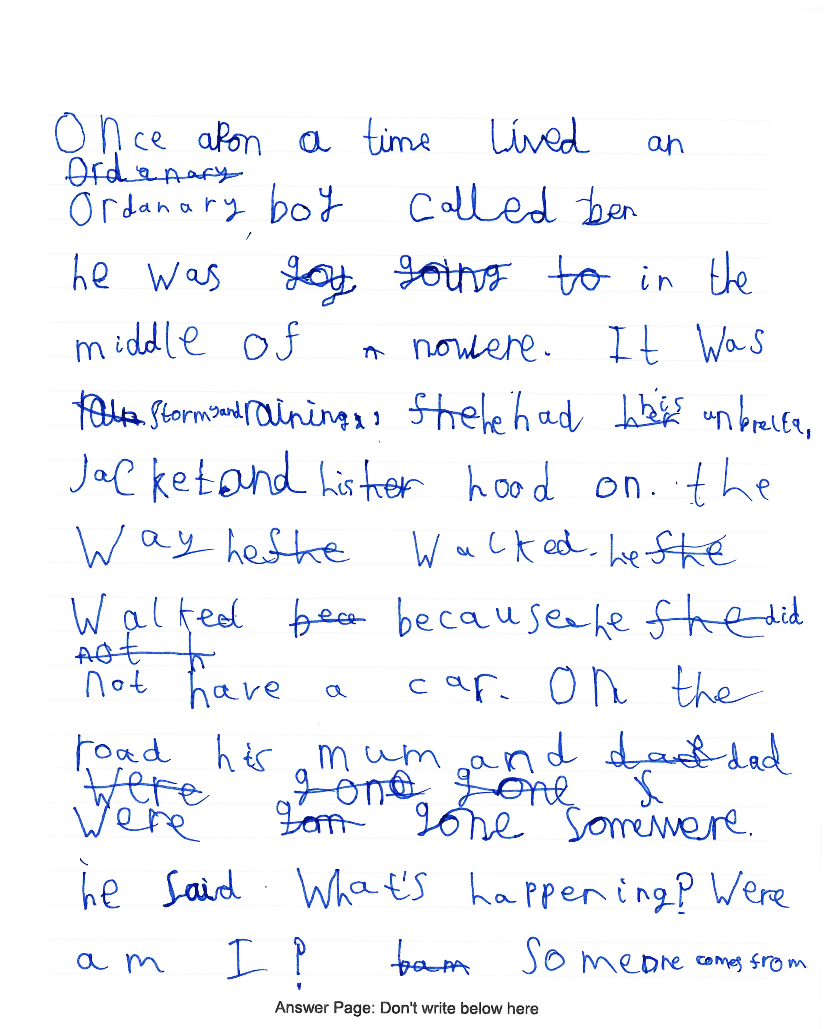 Once apon a time lived an
Ordanary
Ordanary, boy called ben
he was goy going to in the
middle of nowere. It was
stormy and raining, she he had his unbrella,
Jacket and his her hood on. the
Way he she Walked. he she
Walked bea because he she did
not h
not have a car. On the
road his mum and dad dad
were gone gone s
Were gon gone somewere.
he said What's happening? Were
am I? bam Someone comes from
Answer Page: Don't write below here